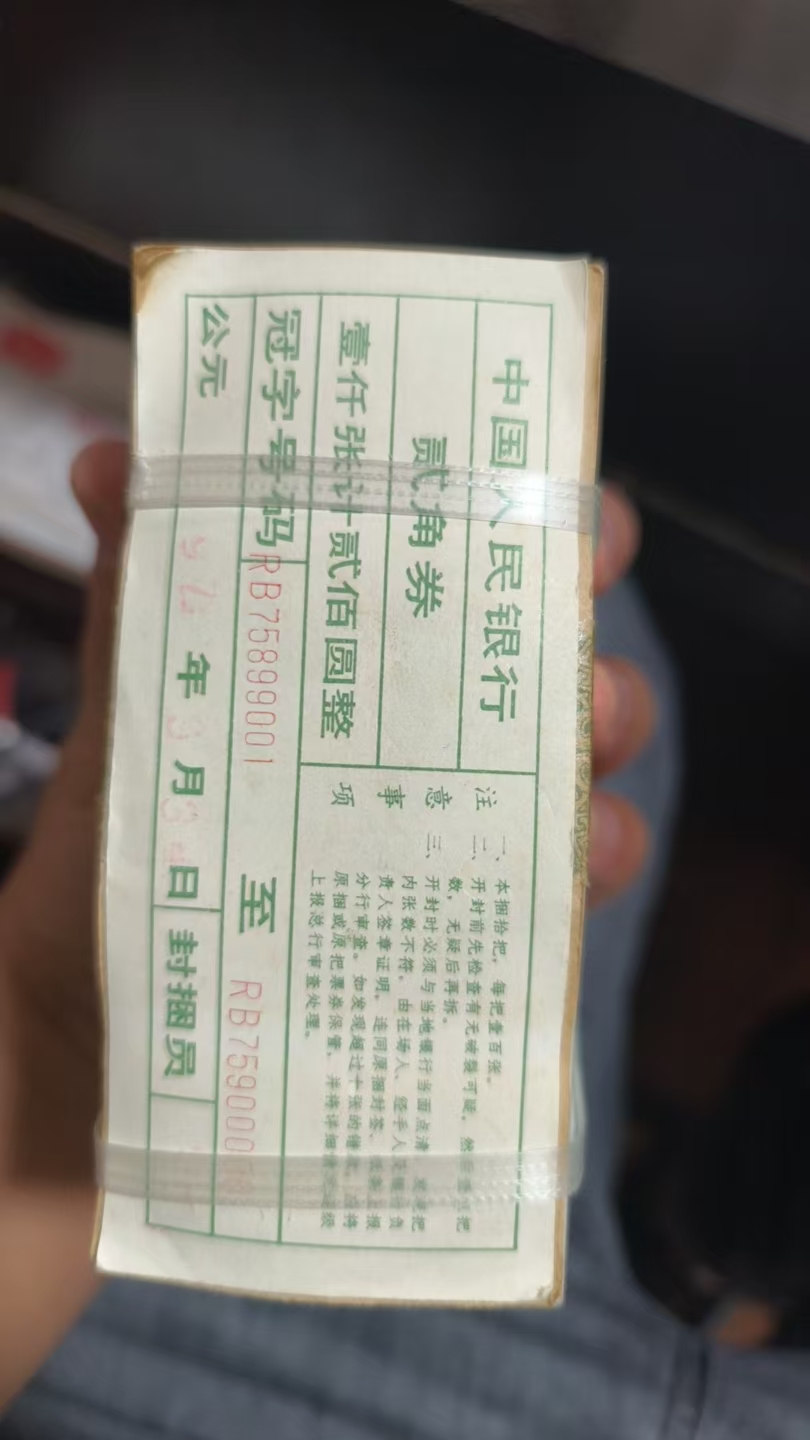 中国人民银行
贰角券
壹仟张计贰佰圆整
冠字号码 RB75899001 至 RB759000
公元 年 月 日 封捆员
注意事项
一、本捆拾把，每把壹百张。
二、开封前先检查有无破裂可疑，然后 把
数，无疑后再拆。
三、开封时必须与当地银行当面点清，发现把
内张数不符，由在场人、经手人及银行负
责人签章证明，连同原捆封签、 报
分行审查。如发现超过十张的错款，应将
原捆或原把票券保管，并将详细情况 级
上报总行审查处理。